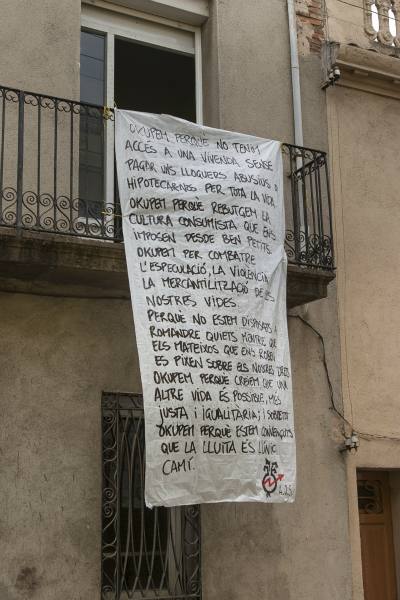 OKUPEM PERQUÈ NO TENIM
ACCÉS A UNA VIVENDA SENSE
PAGAR UNS LLOGUERS ABUSIUS O
HIPOTECARNES PER TOTA LA VIDA.
OKUPEM PERQUÈ REBUTGEM LA
CULTURA CONSUMISTA QUE ENS
IMPOSEN DESDE BEN PETITS.
OKUPEM PER COMBATRE
L'ESPECULACIÓ, LA VIOLÈNCIA
LA MERCANTILITZACIÓ DE LES
NOSTRES VIDES.
PERQUÈ NO ESTEM DISPOSATS A
ROMANDRE QUIETS MENTRE QUE
ELS MATEIXOS QUE ENS ROBEN
ES PIXEN SOBRE ELS NOSTRES DRETS
OKUPEM PERQUÈ CREIEM QUE UNA
ALTRE VIDA ÉS POSSIBLE, MÉS
JUSTA I IGUALITÀRIA; I SOBRETOT
OKUPEM PERQUÈ ESTEM CONVENÇUTS
QUE LA LLUITA ÉS L'ÚNIC
CAMÍ.